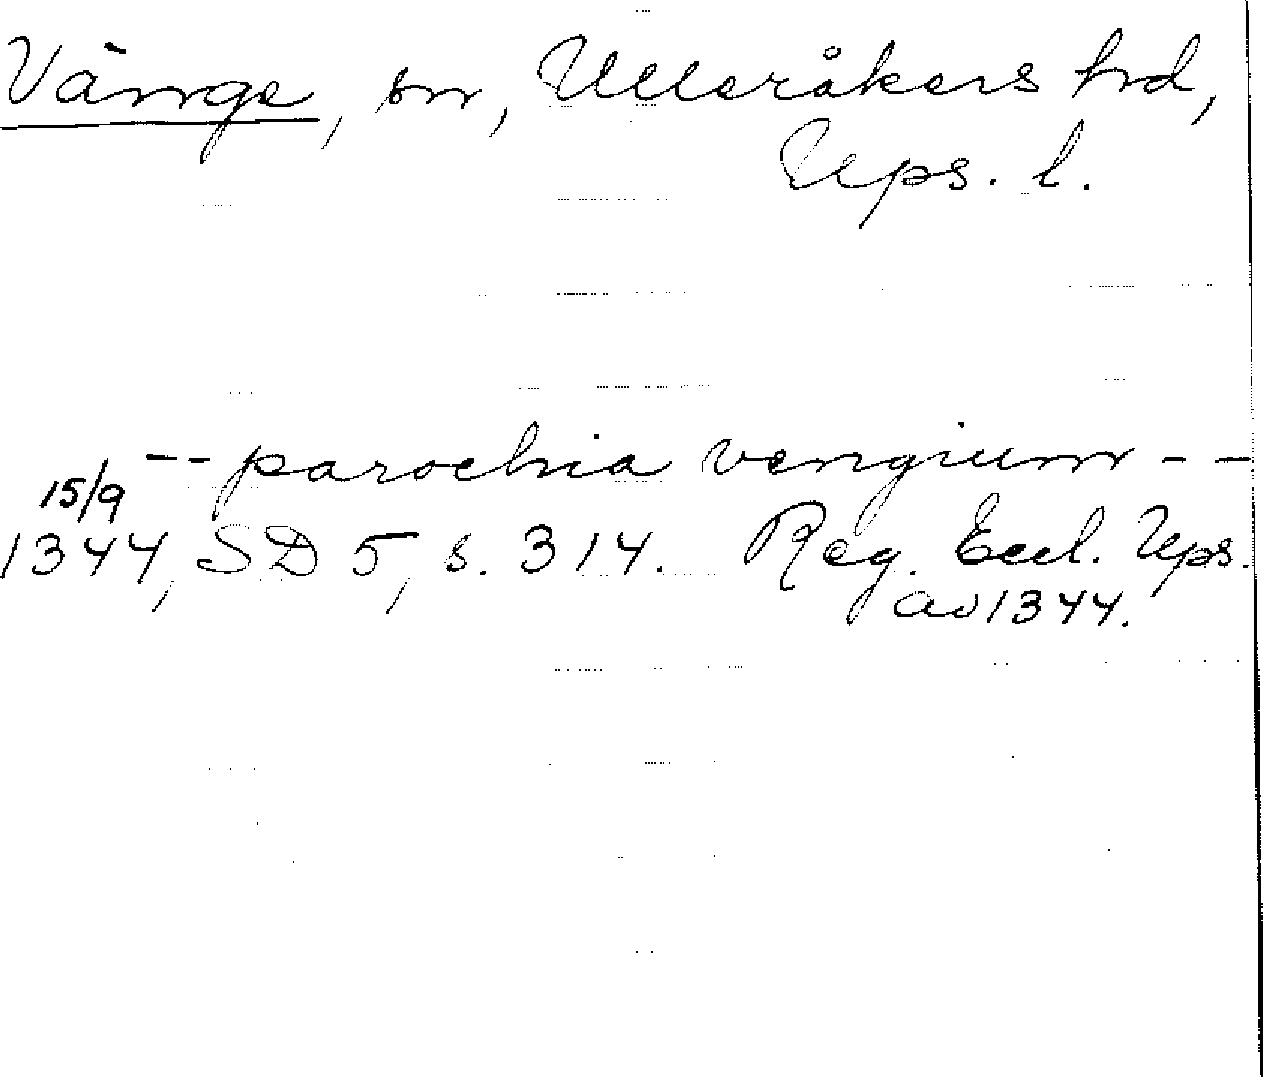 Vänge, sn, Ulleråkers hd,
Ups. l.
-- parochia vengium --
15/9
1344, SD 5, s. 314. Reg. Eccl. Ups.
av 1344.